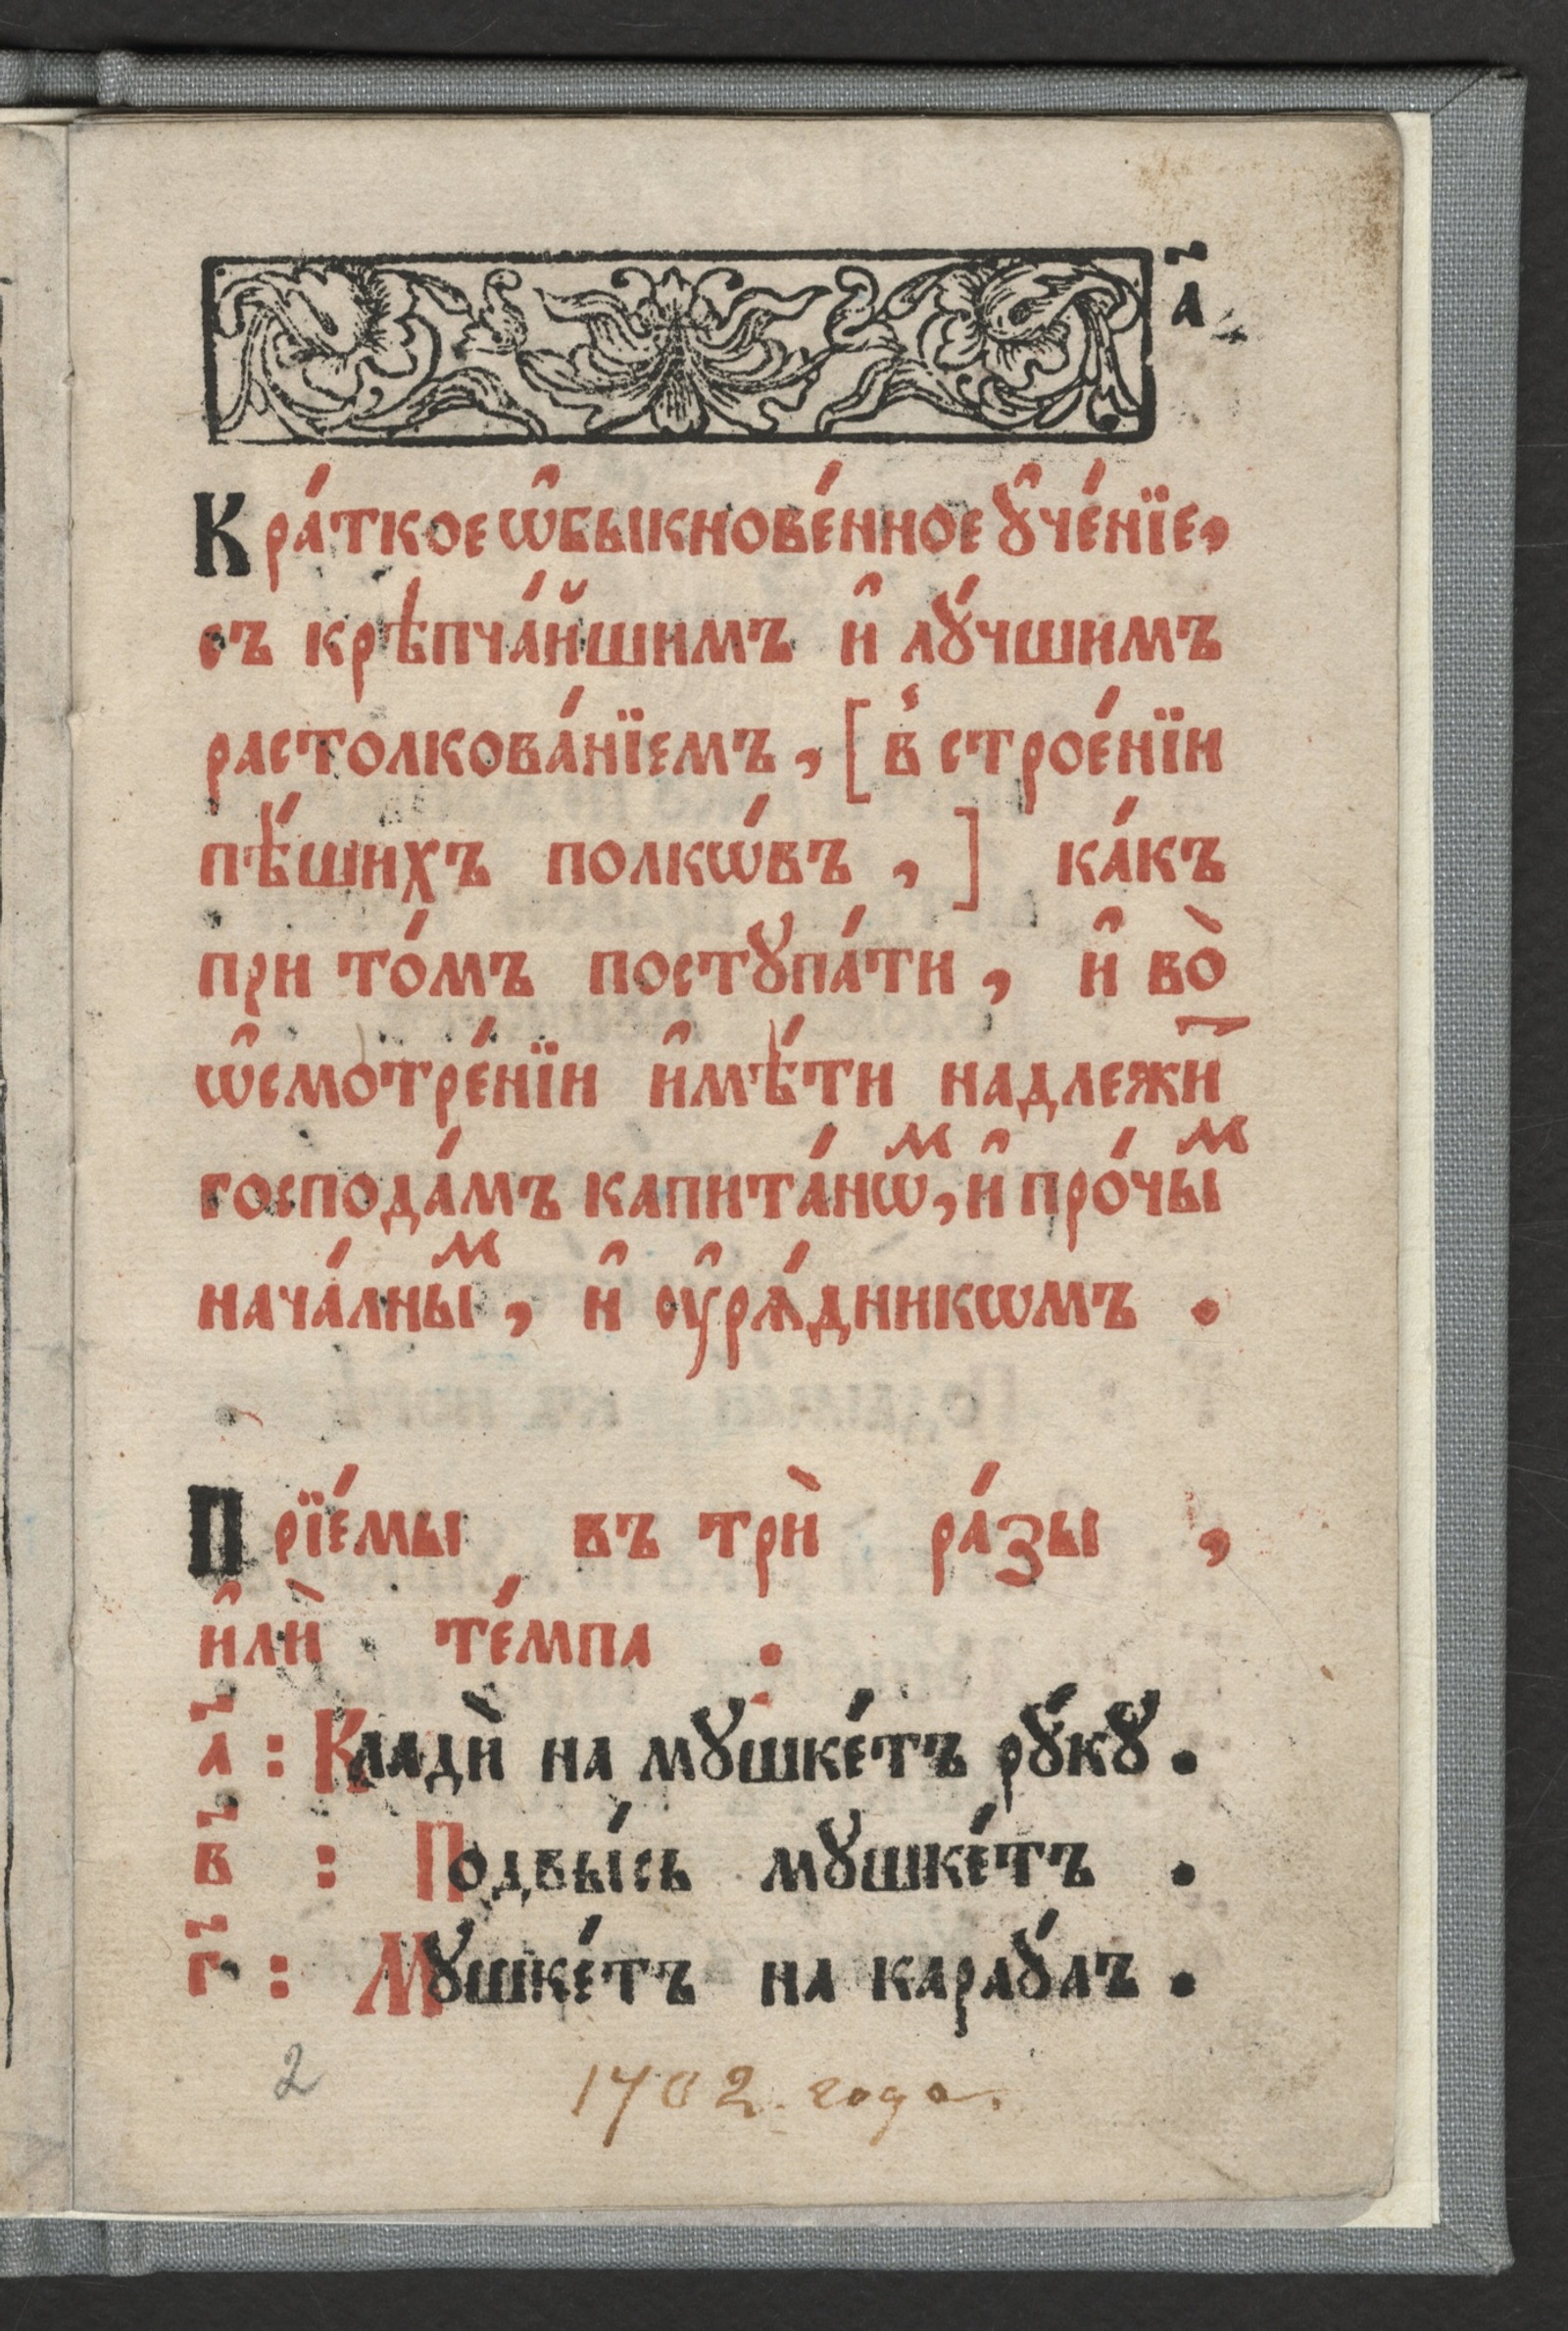 а҃
Кра́ткое ѡ҆быкнове́нное ꙋ҆че́нїе,
съ крѣпча́йшимъ и҆ лꙋ́чшимъ
растолкова́нїемъ, [в̾ строе́нїи
пѣ́шихъ полкѡ́въ,] ка́къ
при то́мъ постꙋпа́ти, и҆ во̀
ѡ҆смотре́нїи и҆мѣ́ти надлежи̑ⷮ
господа́мъ капита́нѡⷨ, и҆ про́чыⷨ
нача́лныⷨ, и҆ ᲂу҆рѧ́дникѡмъ.
Прїе́мы въ трѝ ра́зы,
и҆лѝ те́мпа.
аⷺ: Кладѝ на мꙋшке́тъ рꙋ́кꙋ.
вⷺ: Подвы́сь мꙋшке́тъ.
гⷺ: Мꙋшке́тъ на караꙋ́лъ.
2
1702. года.